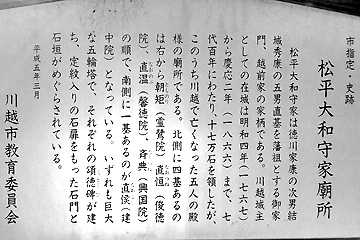 市指定・史跡
松平大和守家廟所
松平大和守家は徳川家康の次男結
城秀康の五男直基を藩祖とする御家
門、越前家の家柄である。川越城主
としての在城は明和四年(一七六七)
から慶応二年(一八六六)まで、七
代百年にわたり十七万石を領したが、
このうち川越で亡くなった五人の殿
様の廟所である。北側に四基あるの
は右から朝矩(霊鷲院)直恒(俊徳
院)、直温(馨徳院)、斉典(興国院)
の順で、南側に一基あるのが直侯(建
中院)となっている。いずれも巨大
な五輪塔で、それぞれの頌徳碑が建
ち、定紋入りの石扉をもった石門と
石垣がめぐらされている。
平成五年三月
川越市教育委員会